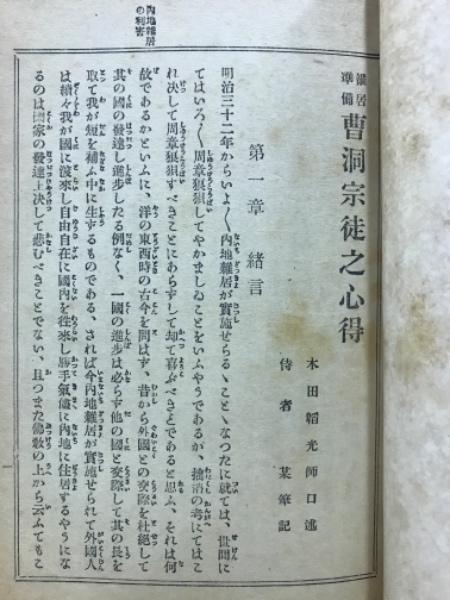 内地雜居
の利害
雜居
準備
曹洞宗徒之心得
木田韜光師口述
侍者某筆記
第一章 緒言
明治三十二年からいよ〱内地雜居が實施せらるゝことゝなつたに就ては、世間に
てはいろ〱周章狼狽してやかましゐことをいふやうであるが、拙衲の考にてはこ
れ决して周章狼狽すべきことにあらずして却て喜ぶべきことであると思ふ、それは何
故であるかといふに、洋の東西時の古今を問はず、昔から外國との交際を杜絕して
其の國の發達し進步したる例なく、一國の進步は必らず他の國と交際して其の長を
取て我が短を補ふ中に生ずるものである、されば今内地雜居が實施せられて外國人
は續々我が國に渡來し自由自在に國內を徃來し勝手氣儘に內地に住居するやうにな
るのは國家の發達上决して悲むべきことでない、且つまた佛敎の上から云ふてもこ